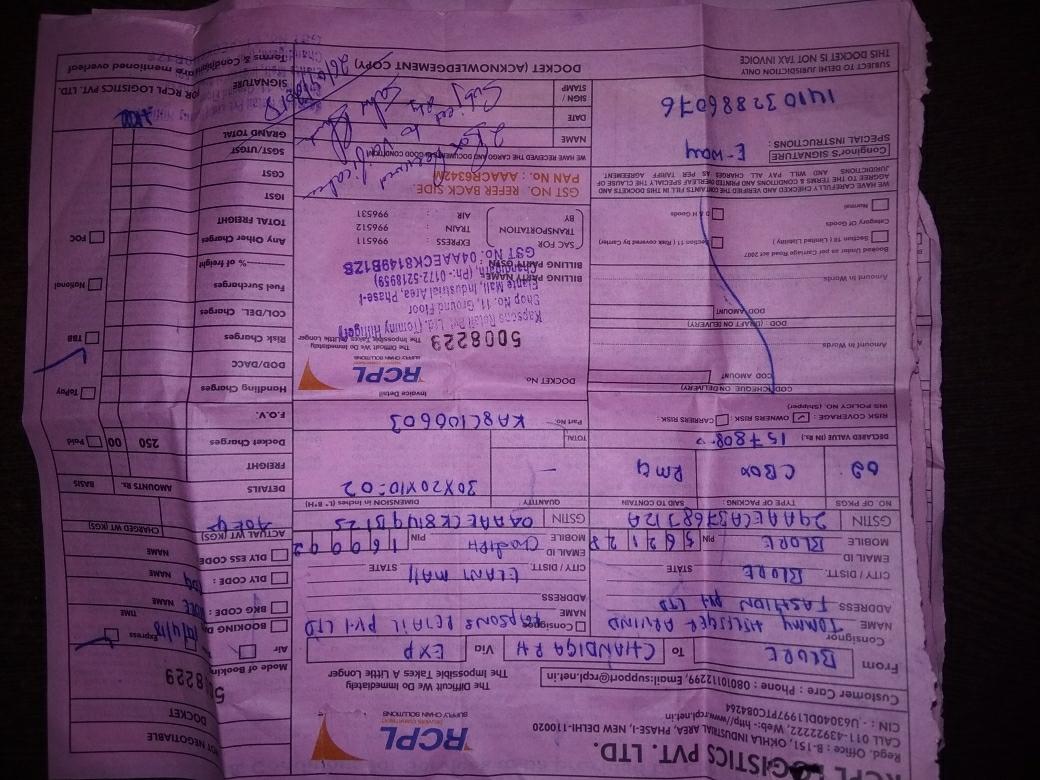 RCPL LOGISTICS PVT. LTD.
Regd. Office : B-151, OKHLA INDUSTRIAL AREA, PHASE-I, NEW DELHI-110020
CALL 011-43922222, Web:- http//www.rcpl.net.in
CIN : - U63040DL1997PTC084264
Customer Care : Phone : 08010112299, Email:support@rcpl.net.in
RCPL
SUPPLY CHAIN SOLUTIONS
The Difficult We Do Immediately
The Impossible Takes A Little Longer
NOT NEGOTIABLE
DOCKET
5008229
From BLORE To CHANDIGARH Via EXP
Mode of Booking
Air
Express
Consignor
NAME TOMMY HILFIGER ARVIND
ADDRESS FASHION PVT LTD
CITY / DISTT. BLORE STATE
EMAIL ID
MOBILE BLORE PIN
GSTIN 29AAECA3768J2A
Consignee
NAME KAPSONS RETAIL PVT LTD
ADDRESS
CITY / DISTT. ELANT MALL STATE
EMAIL ID
MOBILE PIN
GSTIN
BOOKING
TIME
BKG CODE :
NAME
DLY CODE :
NAME
DLY ESS CODE
NAME
ACTUAL WT (KGS)
CHARGED WT (KGS)
NO. OF PKGS
TYPE OF PACKING :
SAID TO CONTAIN
QUANTITY
IN DIMENSION (L* B*H*)
02
CBox
RMG
30X20X10=02
TOTAL
DECLARED VALUE (IN RS.) 157808
RISK COVERAGE : OWNERS RISK : CARRIERS RISK :
INS POLICY NO. (Shipper)
Part No. KA8C100603
Invoice Detail
DETAILS
AMOUNTS Rs.
BASIS
FREIGHT
Docket Charges 250 00
F.O.V.
Handling Charges
DOD/DACC
Risk Charges
COL/DEL. Charges
Fuel Surcharges
% of freight
Any Other Charges
TOTAL FREIGHT
IGST
CGST
SGST/UTGST
GRAND TOTAL
Paid
ToPay
TBB
National
FOC
COD (CHEQUE ON DELIVERY)
COD AMOUNT
Amount in Words
DOD (DRAFT ON DELIVERY)
DOD AMOUNT
Amount in Words
DOCKET No.
RCPL
SUPPLY CHAIN SOLUTIONS
The Difficult We Do Immediately
The Impossible Takes A Little Longer
5008229
Kapsons Retail Pvt. Ltd. (Tommy Hilfiger)
Shop No. 11, Ground Floor
Elante Mall, Industrial Area, Phase-I
Chandigarh, (Ph:- 0172-5218959)
GST No. 04AAECK8149B1ZB
BILLING PARTY NAME
BILLING PARTY GSTIN
SAC FOR TRANSPORTATION BY
EXPRESS : 996511
TRAIN : 996512
AIR : 996531
GST NO. REFER BACK SIDE
PAN No.: AAACR6342M
Booked Under as per Carriage Road act 2007
Section ( 10 Limited Liability )
Section 11 ( Risk covered by Carrier)
Category Of Goods
Normal
D & H Goods
WE HAVE CAREFULLY CHECKED AND VERIFIED THE CONTANTS FILL IN THIS DOCKETS AND
AGGREE TO THE TERMS & CONDITIONS AND PRINTED OVERLEAF SPECIALLY THE CLAUSE OF
JURISDICTIONS AND WILL PAY ALL CHARGES AS PER TARIFF AGREEMENT
Conginor's SIGNATURE
SPECIAL INSTRUCTIONS : E-way
141032886076
WE HAVE RECEIVED THE CARGO AND DOCUMENTS IN GOOD CONDITION
NAME
DATE
SIGN / STAMP
2 Box Received
Subject to
FOR RCPL LOGISTICS PVT. LTD.
SIGNATURE
Terms & Conditions are mentioned overleaf
SUBJECT TO DELHI JURISDICTION ONLY
THIS DOCKET IS NOT TAX INVOICE
DOCKET (ACKNOWLEDGEMENT COPY)